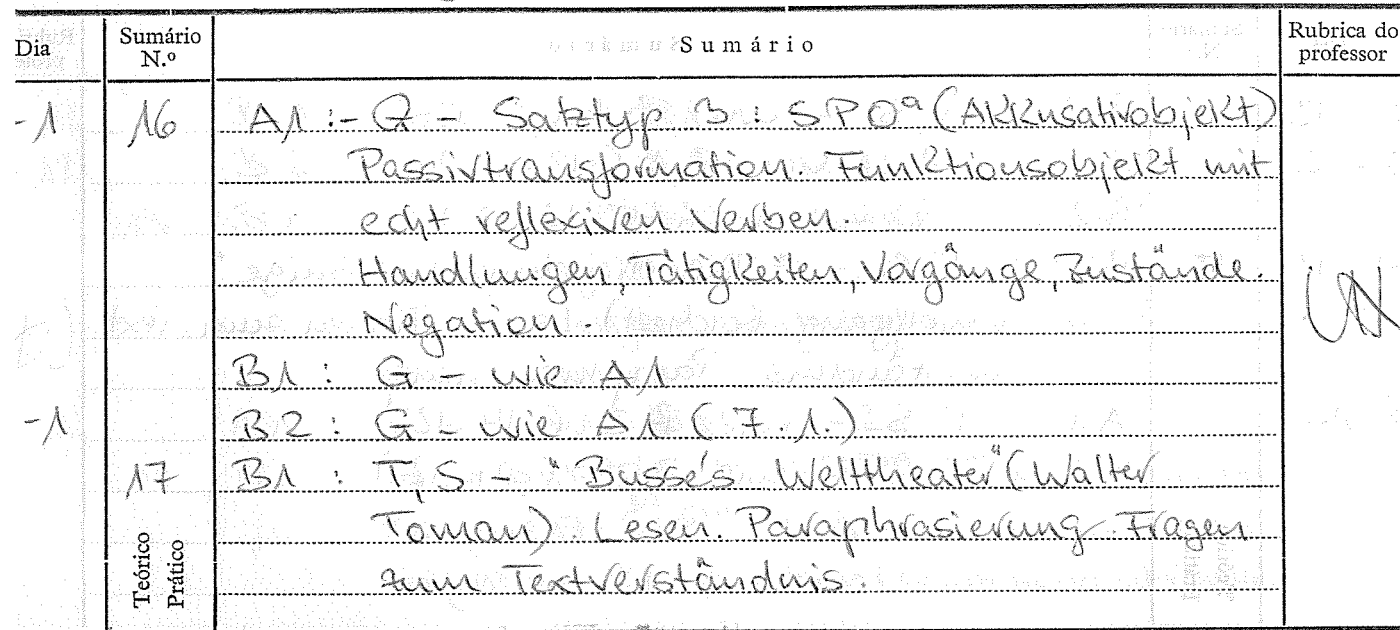 Dia Sumário N.º Sumário Rubrica do professor
-1 16 A1 :- G - Satztyp 3 : SPOᵃ (Akkusativobjekt)
Passivtransformation. Funktionsobjekt mit
echt reflexiven Verben.
Handlungen, Tätigkeiten, Vorgänge, Zustände.
Negation.
B1 : G - wie A1
-1 B2 : G - wie A1 (7.1.)
17 B1 : T, S - "Busse's Welttheater" (Walter
Toman). Lesen. Paraphrasierung. Fragen
zum Textverständnis.
Teórico
Prático